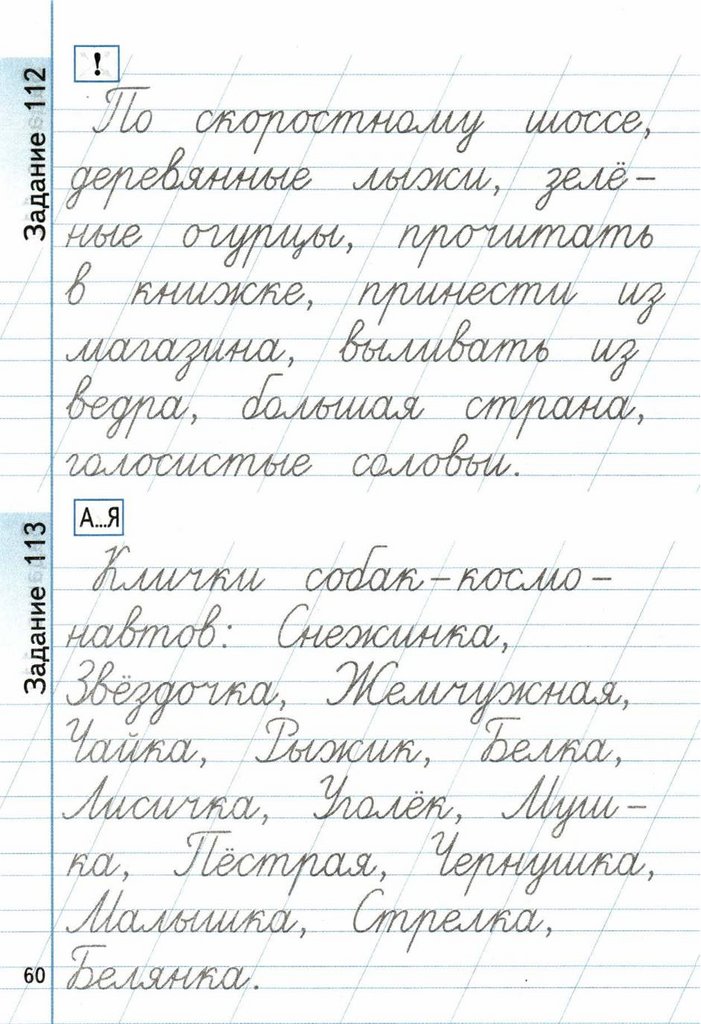 Задание 112
!
По скоростному шоссе,
деревянные лыжи, зелё-
ные огурцы, прочитать
в книжке, принести из
магазина, выливать из
ведра, большая страна,
голосистые соловьи.
Задание 113
А...Я
Клички собак-космо-
навтов: Снежинка,
Звёздочка, Жемчужная,
Чайка, Рыжик, Белка,
Лисичка, Уголёк, Муш-
ка, Пёстрая, Чернушка,
Малышка, Стрелка,
Белянка.
60